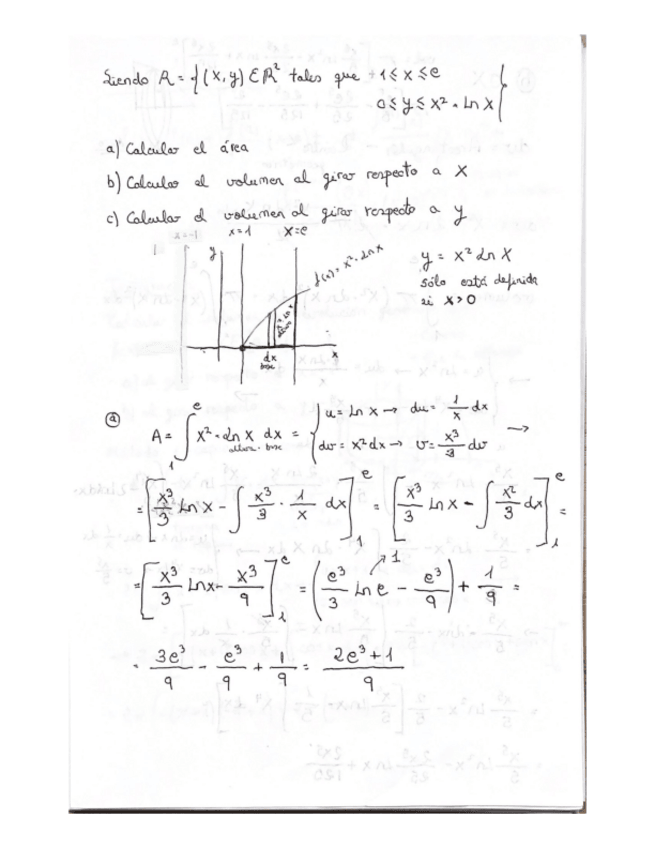 Siendo R = {(x, y) ∈ ℝ² tales que 1 ≤ x ≤ e
0 ≤ y ≤ x² · Ln x}
a) Calcular el área
b) Calcular el volumen al girar respecto a X
c) Calcular el volumen al girar respecto a y
x=-1 x=1 x=e
y f(x) = x² · Ln x
x² Ln x
altura
dx
base
x
y = x² Ln x
sólo está definida
si x > 0
ⓐ
A = ∫₁ᵉ x² · Ln x dx = { u = Ln x → du = 1/x dx
altura · base
dv = x² dx → v = x³/3 dv →
= [x³/3 Ln x - ∫ x³/3 · 1/x dx]₁ᵉ = [x³/3 Ln x - ∫ x²/3 dx]₁ᵉ =
= [x³/3 Ln x - x³/9]₁ᵉ = (e³/3 Ln e - e³/9) + 1/9 =
1
= 3e³/9 - e³/9 + 1/9 = 2e³+1/9